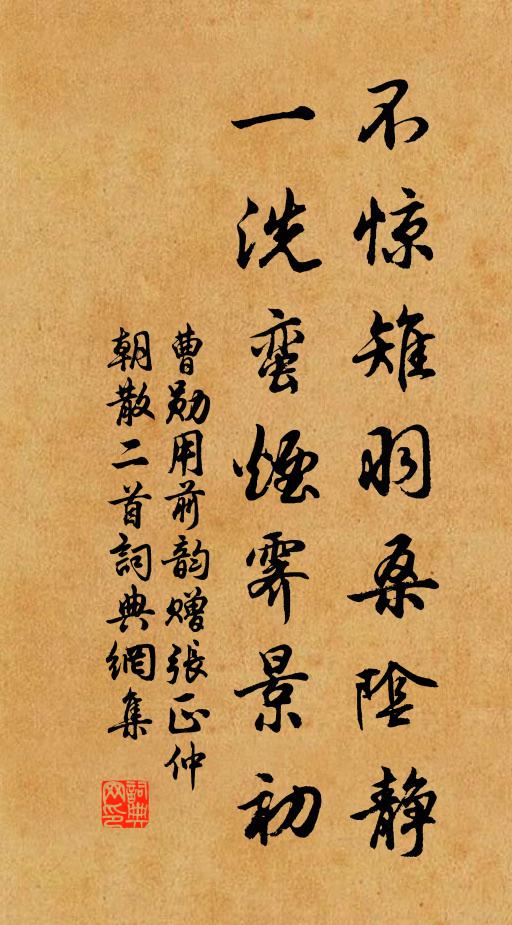 不惊雉羽桑陰静
一洗蛮煙霽景初
曹勋用前韵赠張正仲
朝散二首詞典網集
詞典网印